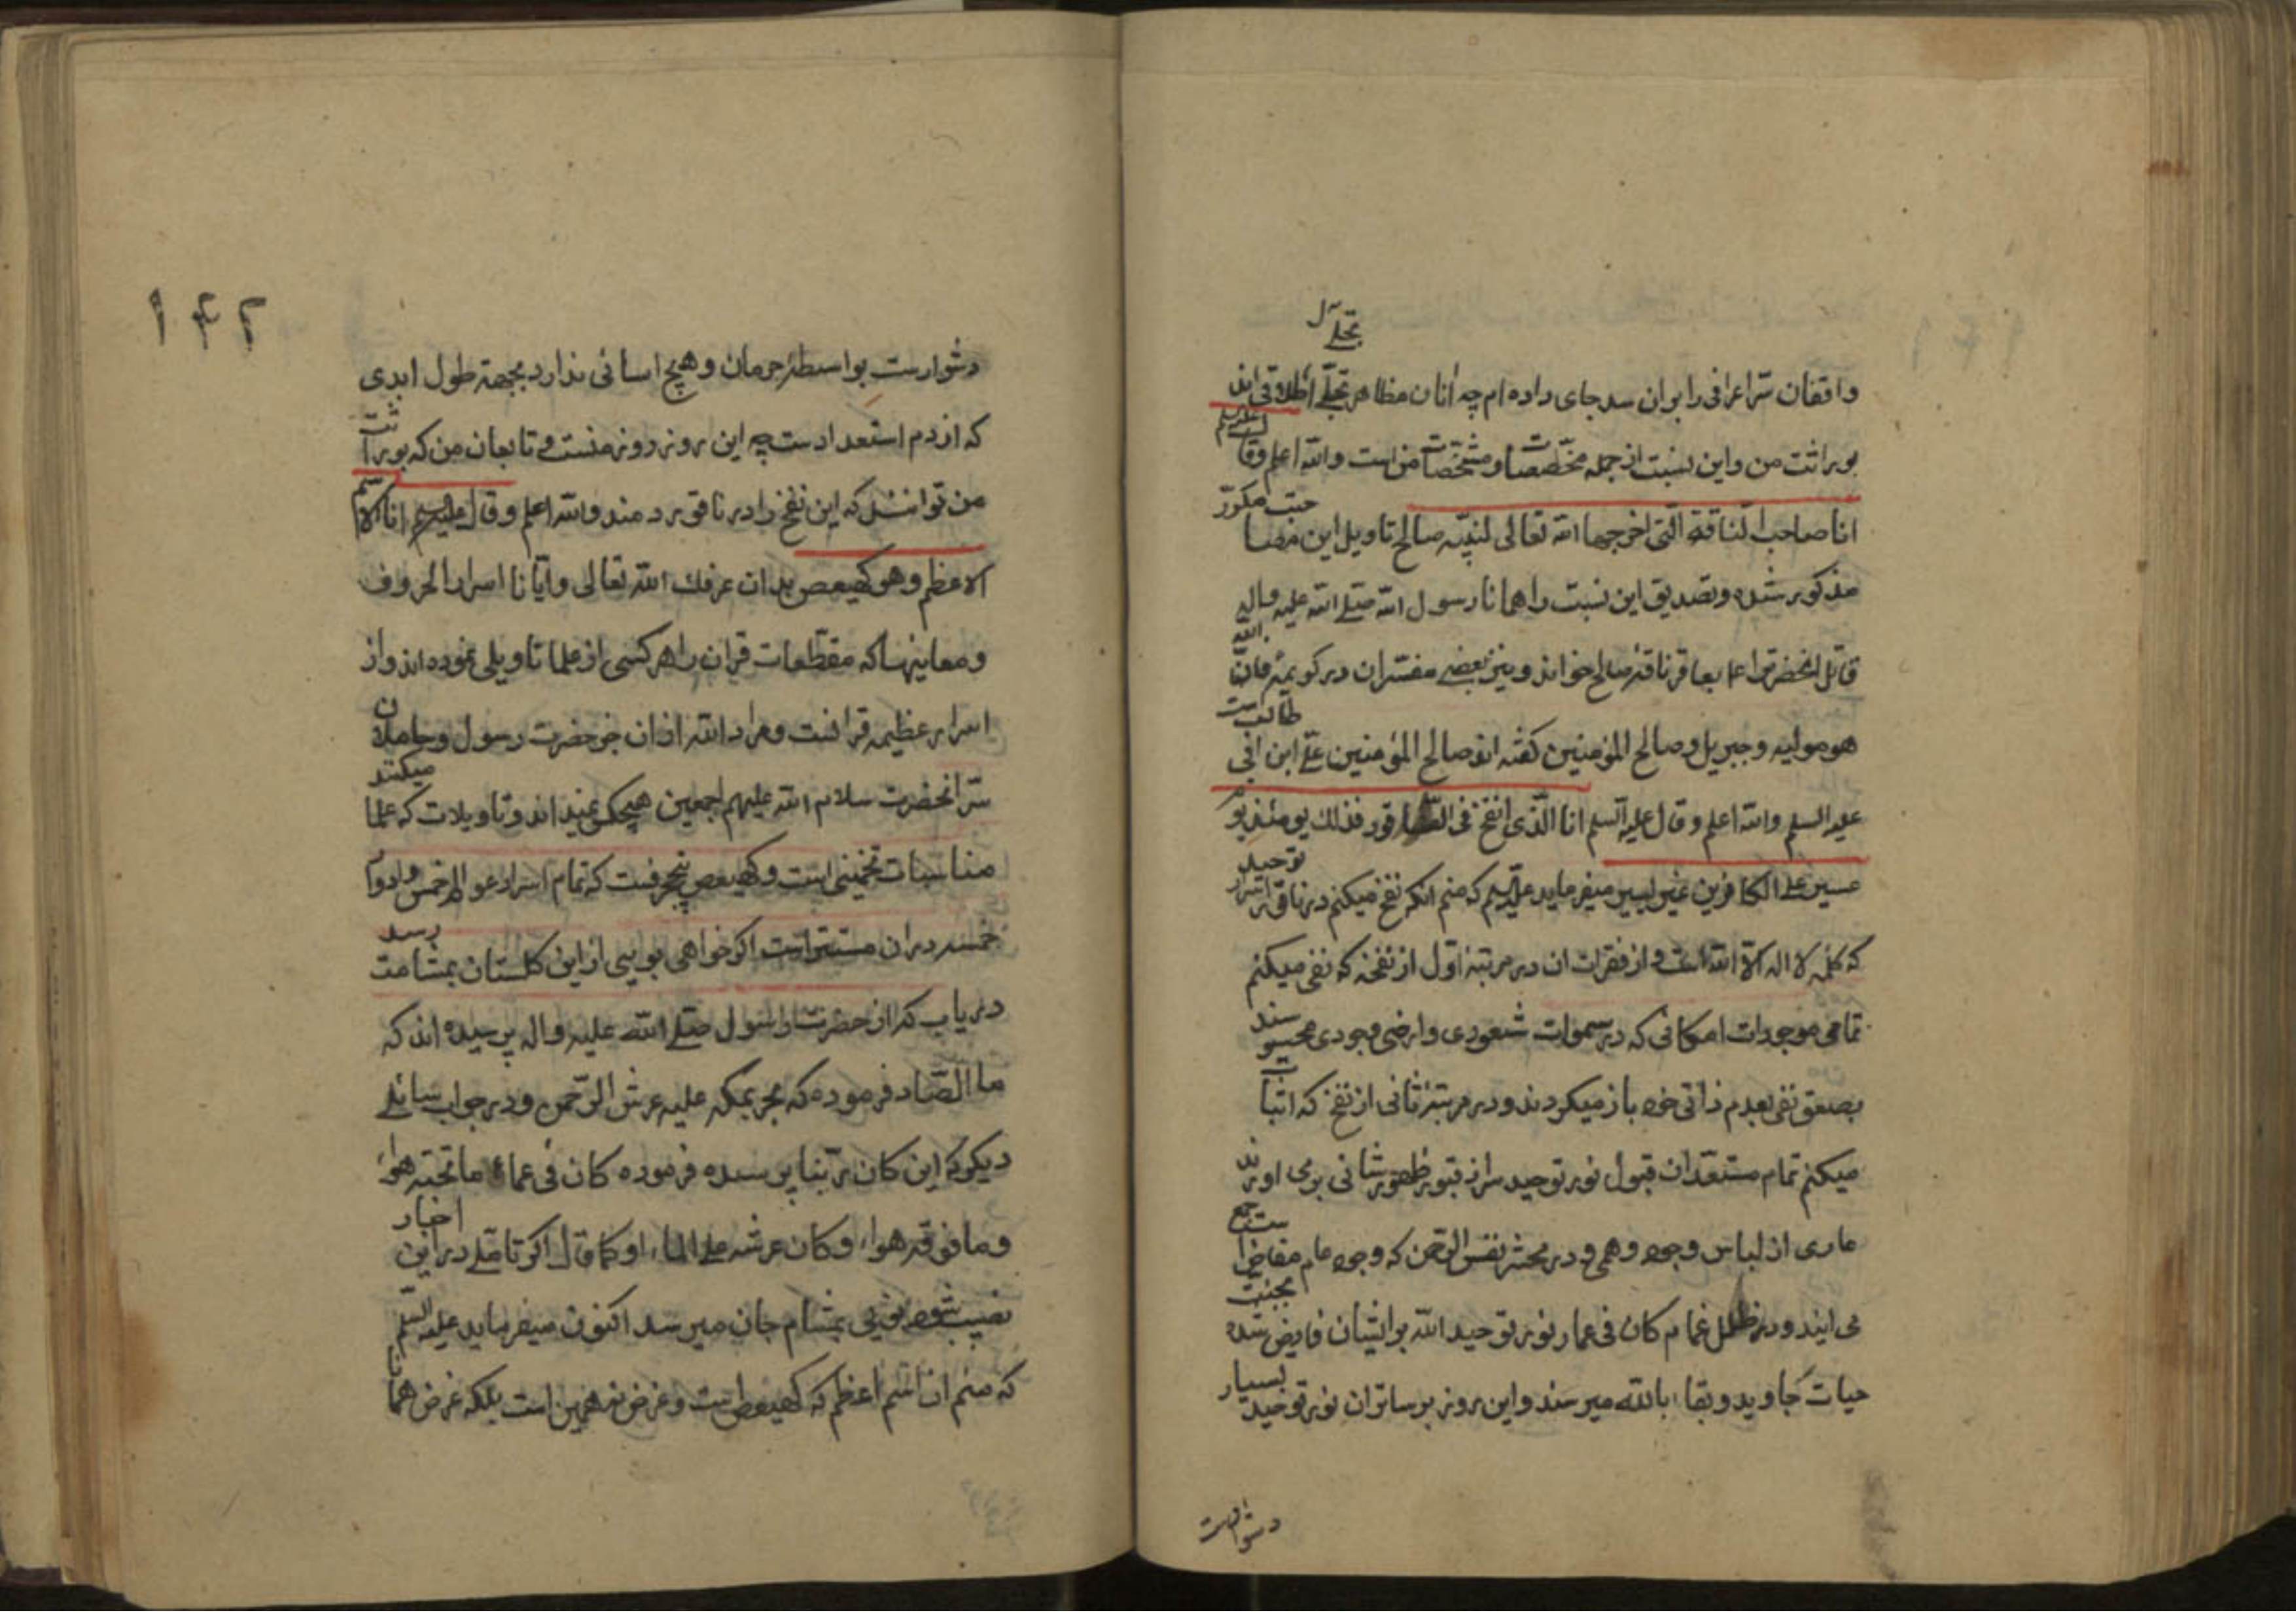 تجلی
واقفان سر اعرافی را بران سد جای داده ام چه آنان مظاهر تجلی اطلاقی اند
بوراثت من و این نسبت از جمله مخصصات و مشخصات من است والله اعلم وقال علیه السلم
انا صاحب الناقة التی اخرجها الله تعالی لنبیه صالح تاویل این مصاحبت مکرر
مذکور شده و تصدیق این نسبت را همانا رسول الله صلی الله علیه واله
قاتل انحضرترا عاقر ناقهٔ صالح خواند و نیز بعضی مفسران در کریمهٔ فان الله
هو مولیه وجبریل وصالح المؤمنین گفته اند صالح المؤمنین علی ابن ابی طالب است
علیه السلم والله اعلم وقال علیه السلم انا الذی انفخ فی الناقور فذلك یومئذ یوم
عسیر علی الکافرین غیر یسیر میفرماید علیه السلم که منم انکه نفخ میکنم در ناقور اسرار توحید
که کلمهٔ لا اله الا الله است و از فقرات ان در مرتبهٔ اول از نفخه که نفی میکنم
تمامی موجودات امکانی که در سموات شعودی و ارضی وجودی محبوسند
بصعق نفی بعدم ذاتی خود باز میکردند و در مرتبهٔ ثانی از نفخ که اثبات
میکنم تمام مستعدان قبول نور توحید سر از قبور ظهور ثانی بر می اورند
عاری از لباس وجود وهمی و در محشر نفس الرحمن که وجود عام مفاض است جمع
می ایند و در ظلل غمام کان فی عما نور توحید الله بر ایشان فایض شده بجنت
حیات جاوید و بقاء بالله میرسند و این روز بر ساتران نور توحید بسیار
دشوارست
۱۴۲
دشوارست بواسطهٔ حرمان و هیچ اسانی ندارد بجهة طول ابدی
که از دم استعدادست چه این روز روز منست و تابعان من که بوراثت
من توانند که این نفخ را در ناقور دمند والله اعلم وقال علیه السلم انا الاسم
الاعظم وهو کهیعص بدان عرفك الله تعالی وایانا اسرار الحروف
ومعاینها که مقطعات قران را هر کسی از علما تاویلی نموده اند و از
اسرار عظیمه قرانست و مراد الله از ان جز حضرت رسول و حاملان
سر انحضرت سلام الله علیهم اجمعین هیچکس نمیداند و تاویلات که علما میکنند
مناسبات تخمینی است و کهیعص پنج حرفست که تمام اسرار عوالم خمس و ادوار
خمسه در ان مستترست اکر خواهی بویی از این کلستان بمشامت رسد
دریاب که از حضرت رسول صلی الله علیه واله پرسیده اند که
ما الصاد فرموده که بحر بمکه علیه عرش الرحمن و در جواب سائلی
دیکر که این کان ربنا پرسیده فرموده کان فی عماء ما تحته هواء
وما فوقه هواء وکان عرشه علی الماء او کما قال اکر تاملی در این اخبار
نصیب شود بویی بمشام جان میرسد اکنون میفرماید علیه السلم
که منم ان اسم اعظم که کهیعص است و غرض نه همین است بلکه غرض همان